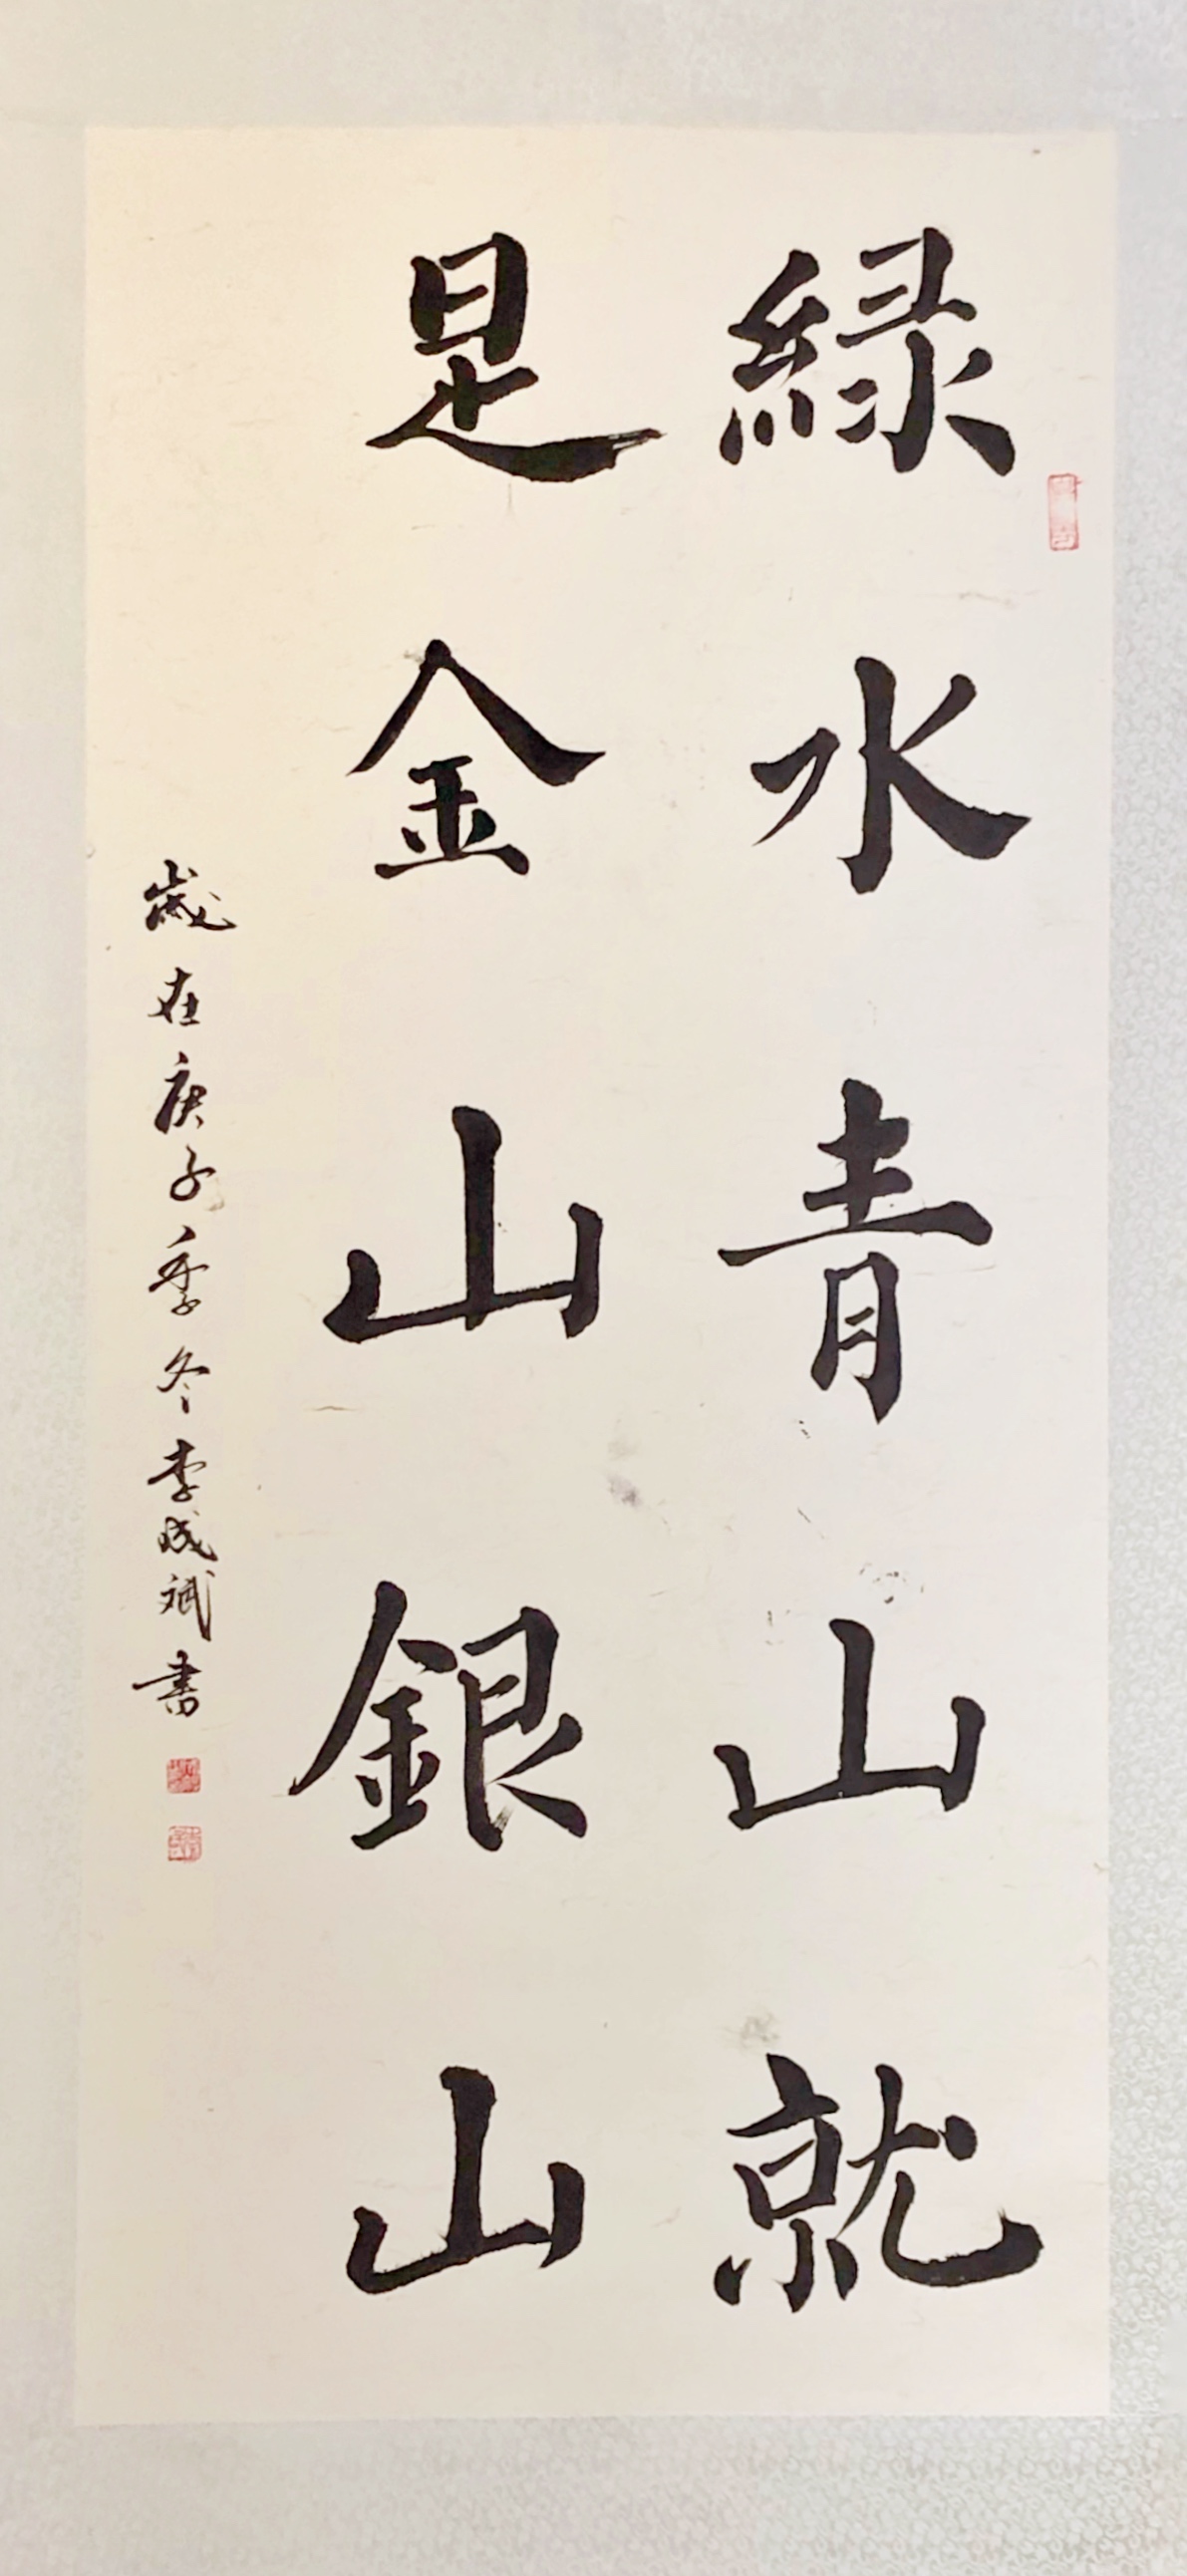 緑水青山就
是金山銀山
歲在庚子季冬李成斌書